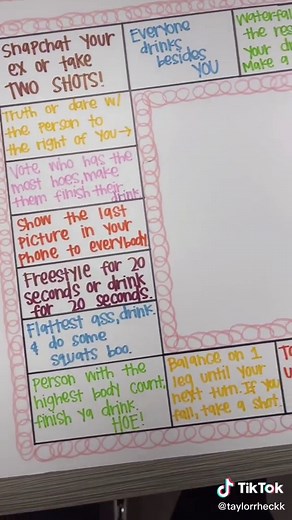 SnapChat Your
ex or take
TWO SHOTS!
Everyone
drinks
besides
YOU
Waterfal
the res
Your d
Make a
Truth or dare w/
the person to
the right of You →
Vote who has the
most hoes, make
them finish their
drink
Show the last
Picture in your
Phone to everybody
Freestyle for 20
seconds or drink
for 20 seconds.
Flattest ass, drink
& do some
squats boo.
Person with the
highest body count,
finish ya drink.
HOE!
Balance on 1
leg until Your
next turn. If you
fall, take a shot.
TikTok
@taylorrheckk